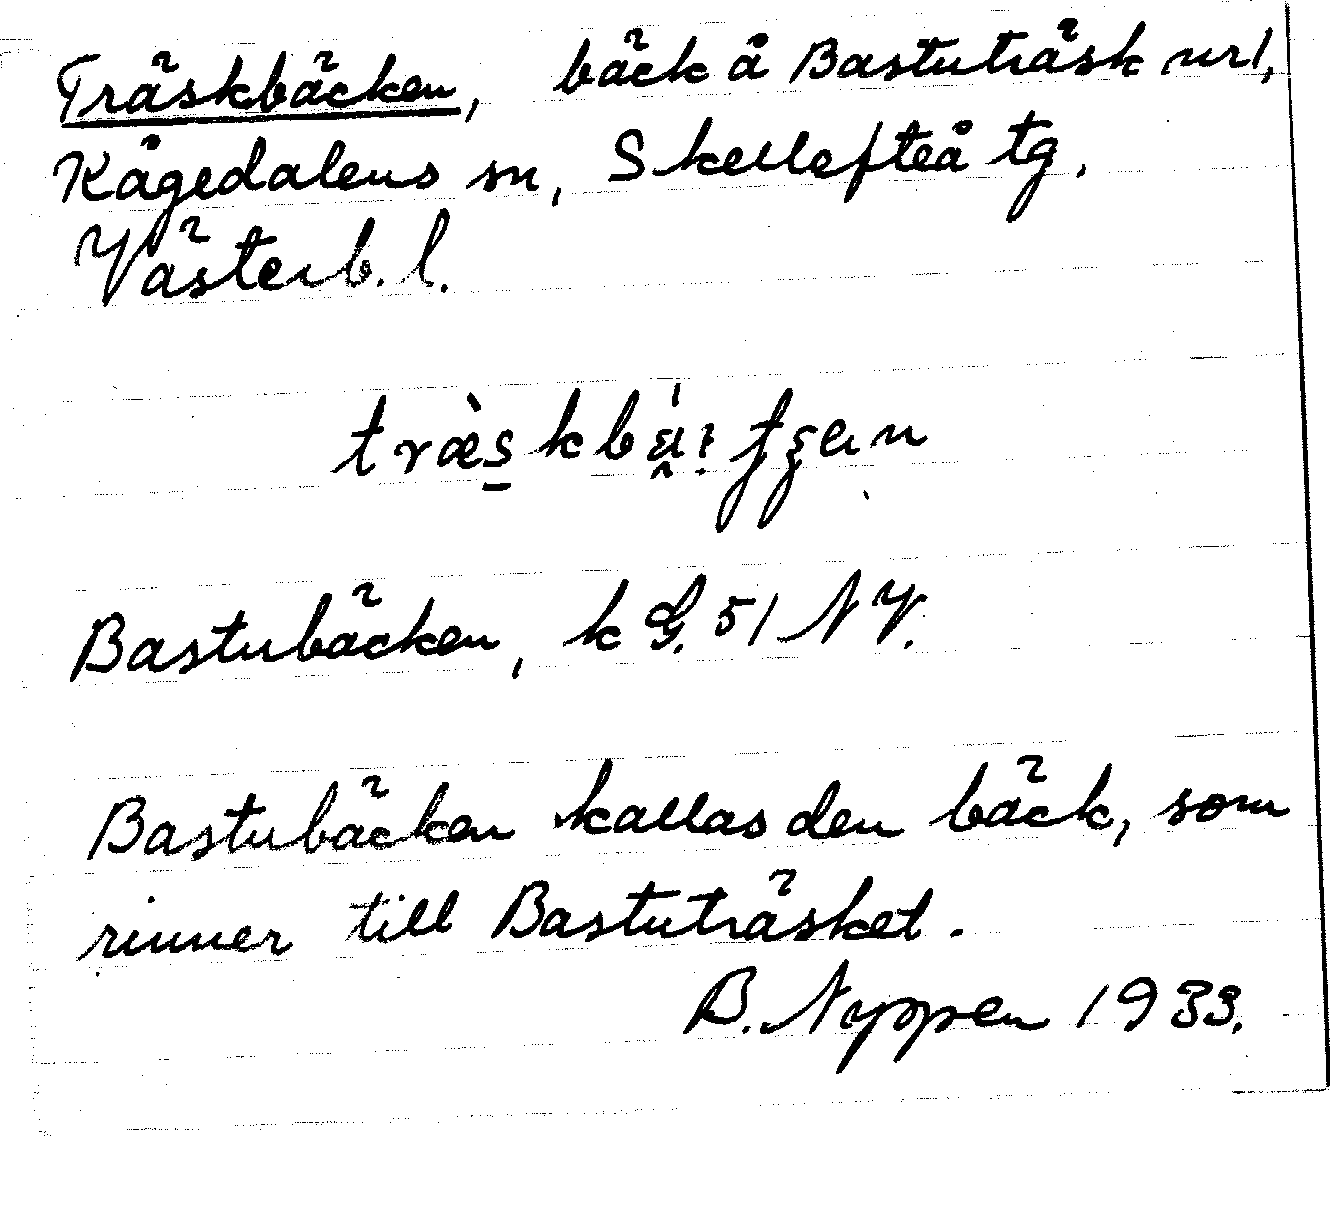 Träskbäcken, bäck å Bastuträsk nr 1,
Kågedalens sn, Skellefteå tg,
Västerb. l.
Bastubäcken, k G. 51 NV.
Bastubäcken kallas den bäck, som
rinner till Bastuträsket.
B. Nyppen 1933.